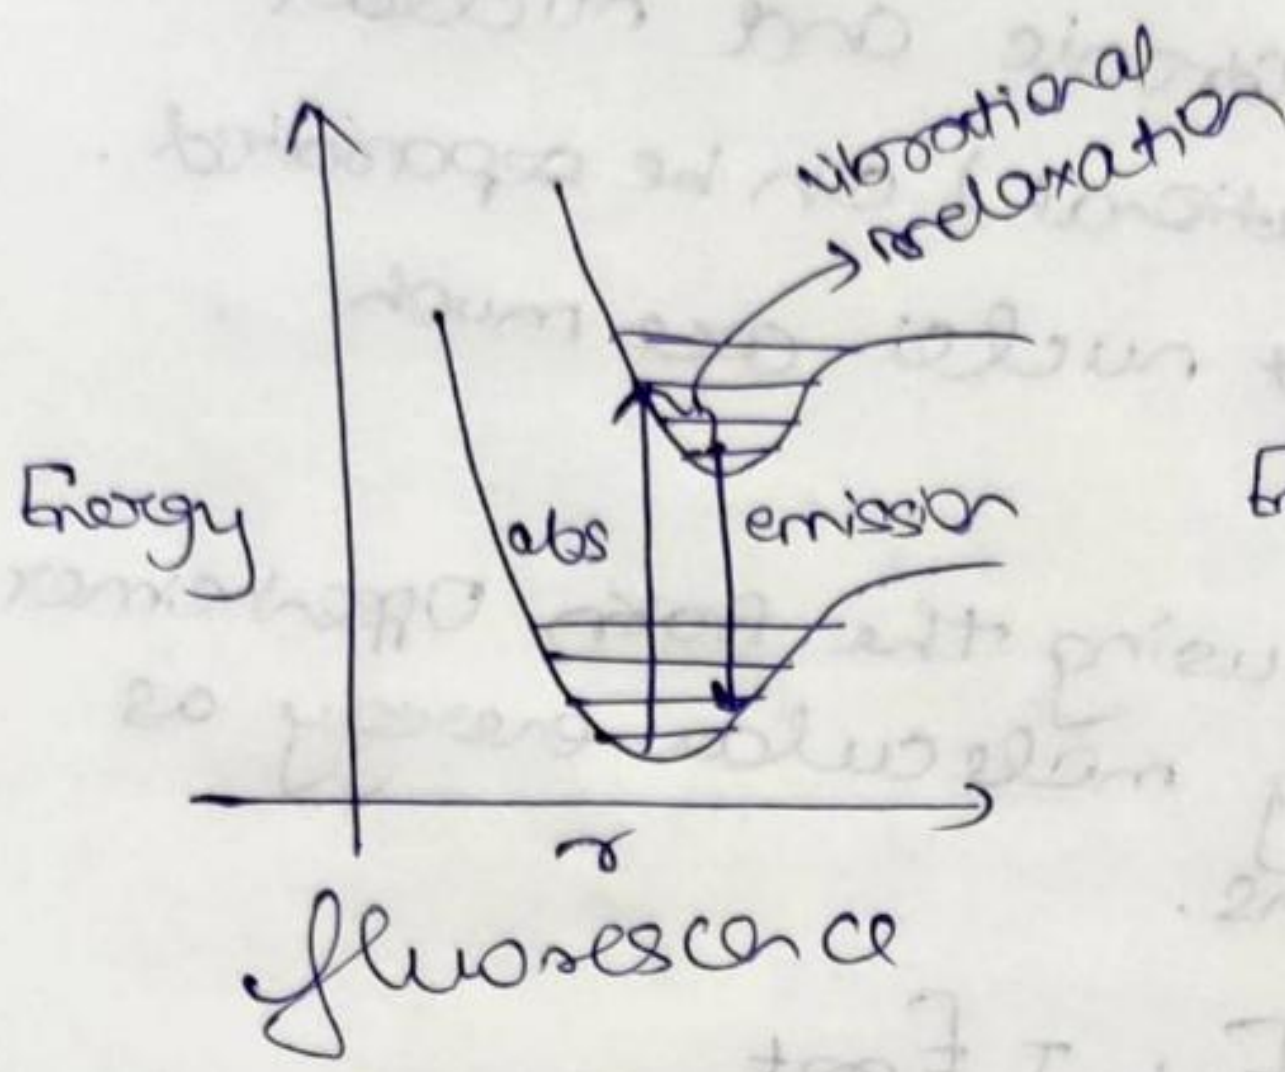 vibrational
relaxation
Energy
abs
emission
r
fluorescence